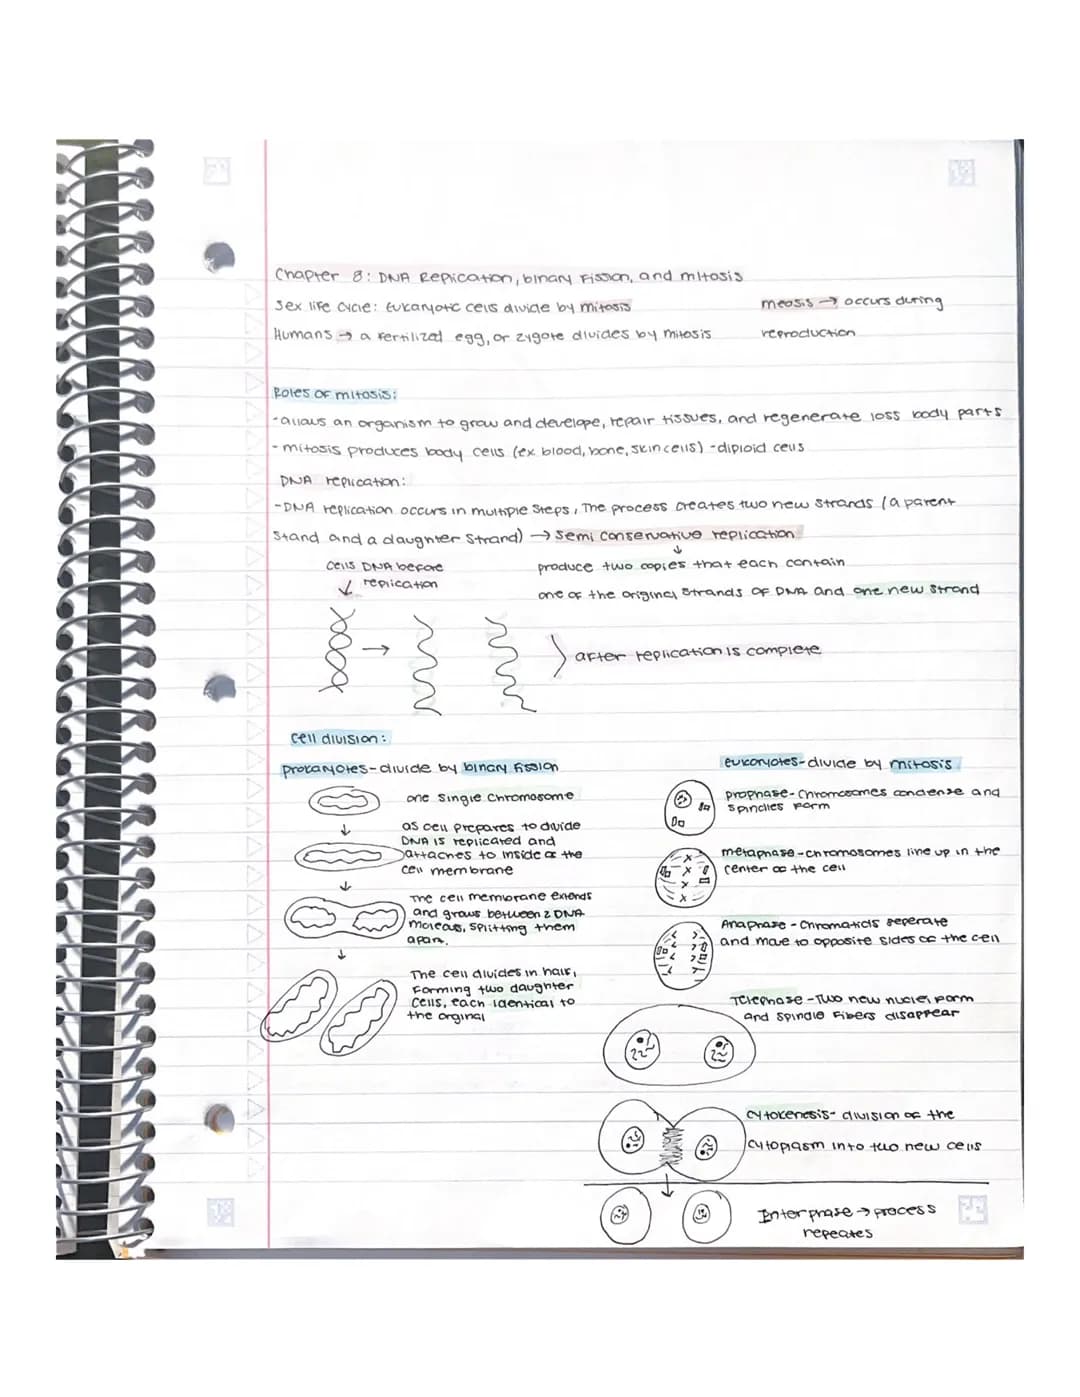 Chapter 8: DNA Replication, binary Fission, and mitosis
Sex life cycle: Eukaryotic cells divide by mitosis
meosis → occurs during
Humans → a fertilized egg, or zygote divides by mitosis
reproduction
Roles of mitosis:
-allows an organism to grow and develope, repair tissues, and regenerate loss body parts
- mitosis produces body cells (ex blood, bone, skin cells) -diploid cells
DNA replication:
-DNA replication occurs in multiple steps, The process creates two new strands (a parent
stand and a daughter strand) → Semi conservative replication
↓
cells DNA before
replication
produce two copies that each contain
one of the original strands of DNA and one new strand
→
after replication is complete
cell division:
prokaryotes-divide by binary fission
one single chromosome
as cell prepares to divide
DNA is replicated and
attaches to inside of the
cell membrane
The cell membrane extends
and grows between 2 DNA
molecus, splitting them
apart.
The cell divides in half,
forming two daughter
cells, each identical to
the orginal
eukaryotes-divide by mitosis
prophase-chromosomes condense and
spindles form
metaphase-chromosomes line up in the
center of the cell
Anaphase - Chromatids seperate
and move to opposite sides of the cell
Telephase -Two new nuclei form
and spindle fibers disappear
cytokenesis- division of the
cytoplasm into two new cells
Interphase → process
repeates